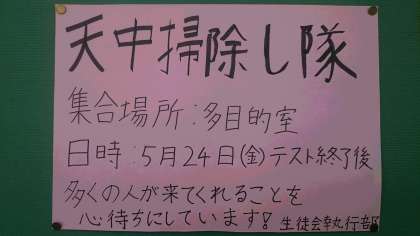 天中掃除し隊
集合場所:多目的室
日時:5月24日(金)テスト終了後
多くの人が来てくれることを
心待ちにしています! 生徒会執行部